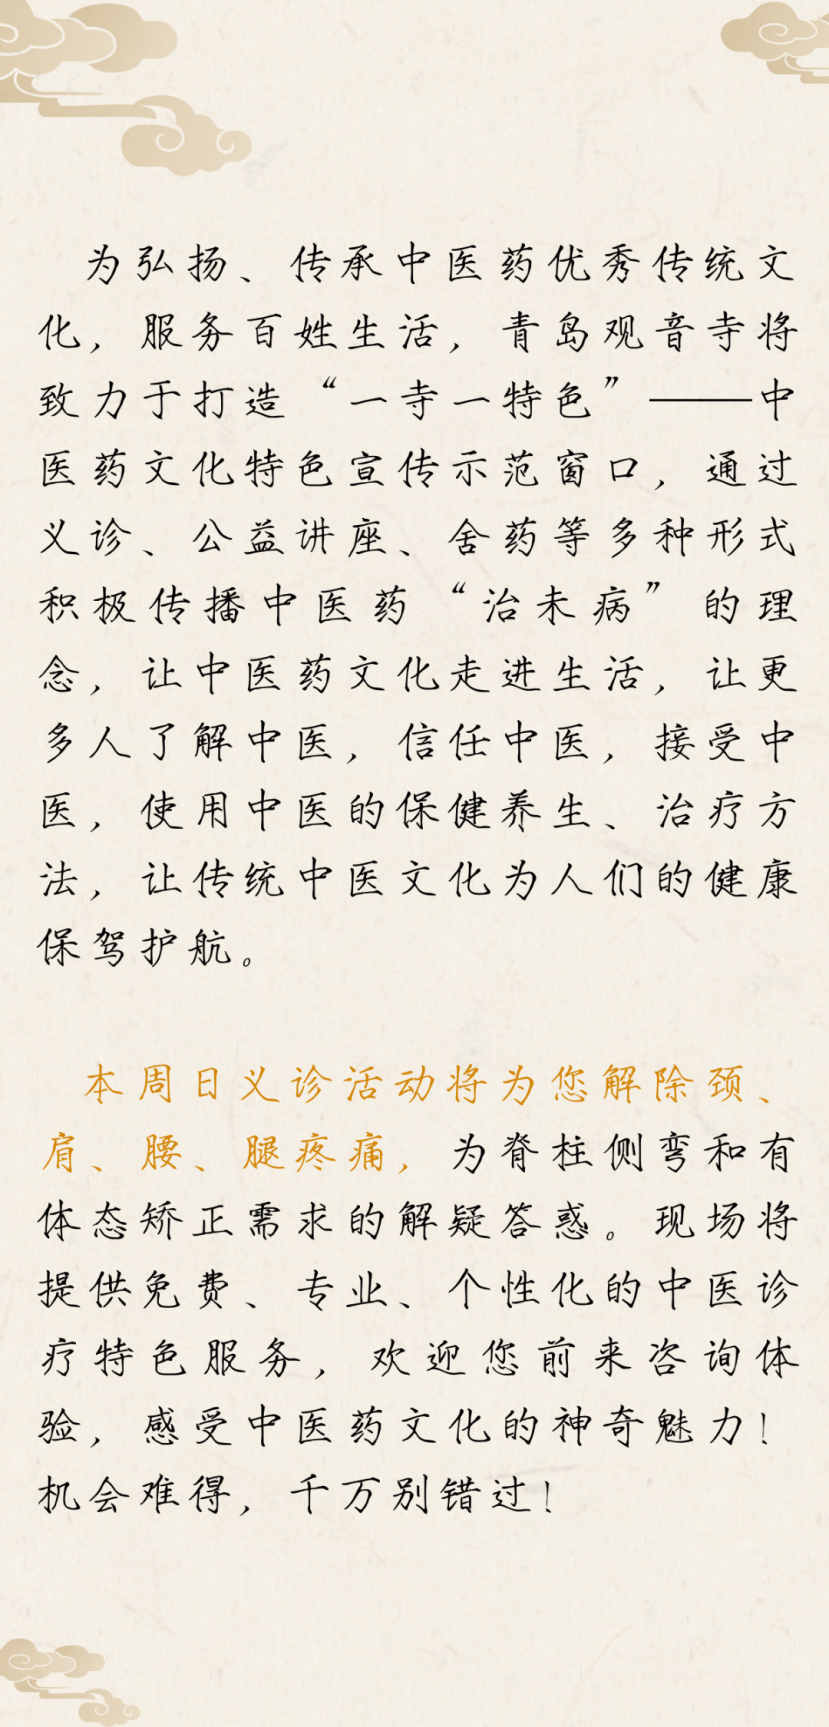 为弘扬、传承中医药优秀传统文
化，服务百姓生活，青岛观音寺将
致力于打造“一寺一特色”——中
医药文化特色宣传示范窗口，通过
义诊、公益讲座、舍药等多种形式
积极传播中医药“治未病”的理
念，让中医药文化走进生活，让更
多人了解中医，信任中医，接受中
医，使用中医的保健养生、治疗方
法，让传统中医文化为人们的健康
保驾护航。
本周日义诊活动将为您解除颈、
肩、腰、腿疼痛，为脊柱侧弯和有
体态矫正需求的解疑答惑。现场将
提供免费、专业、个性化的中医诊
疗特色服务，欢迎您前来咨询体
验，感受中医药文化的神奇魅力！
机会难得，千万别错过！